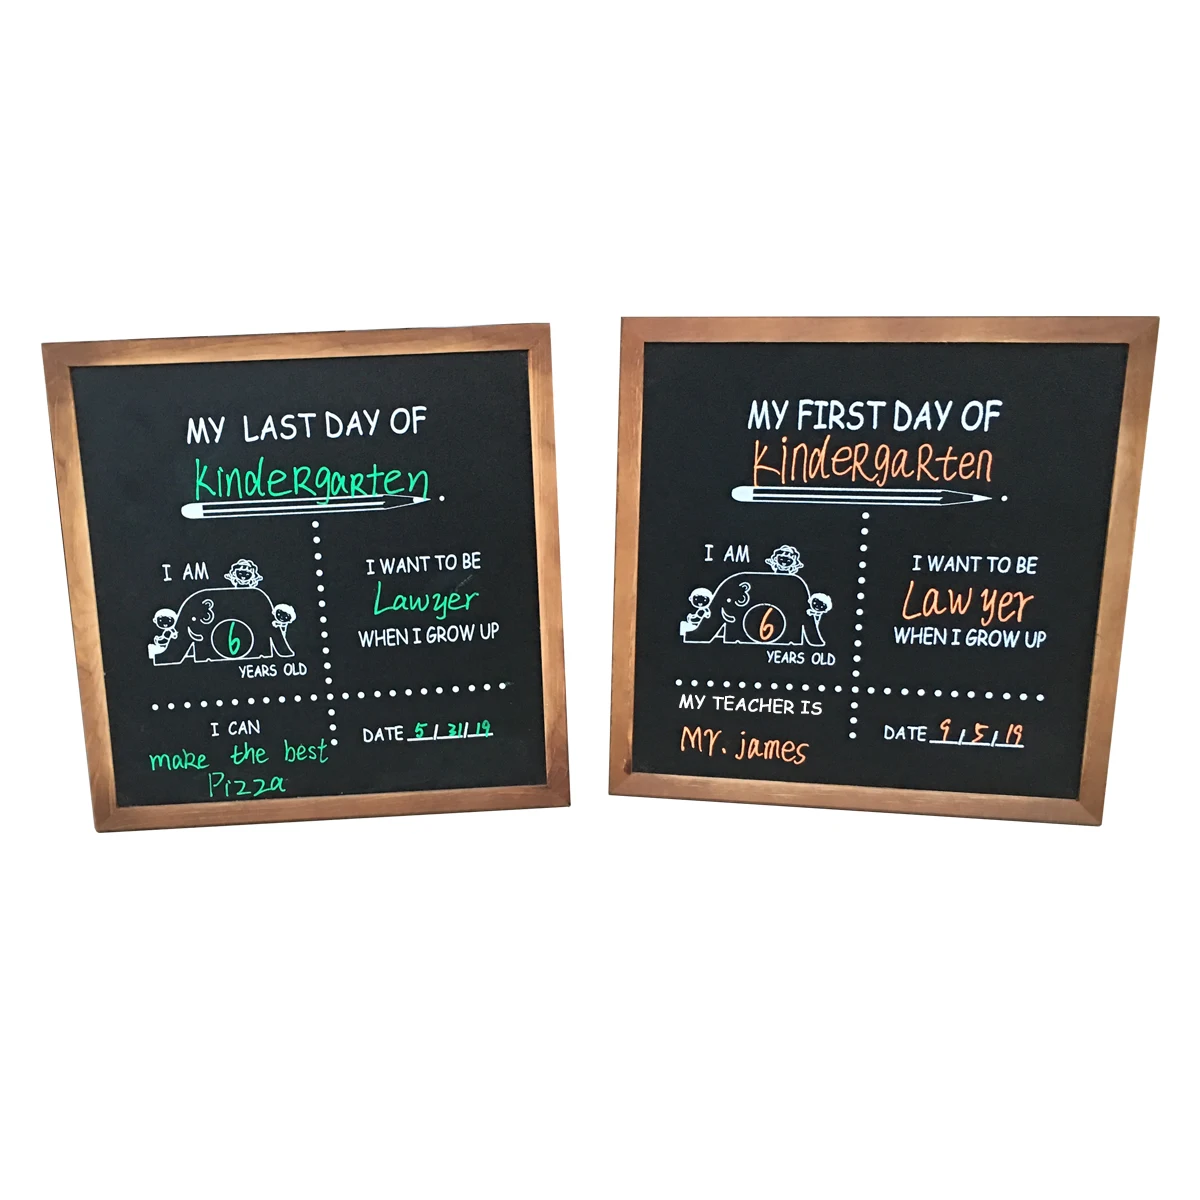 MY LAST DAY OF
KindeRgarten
I AM
6
YEARS OLD
I WANT TO BE
Lawyer
WHEN I GROW UP
I CAN
make the best
Pizza
DATE 5/31/19
MY FIRST DAY OF
KindeRgaRten
I AM
6
YEARS OLD
I WANT TO BE
Lawyer
WHEN I GROW UP
MY TEACHER IS
Mr. james
DATE 9/5/19